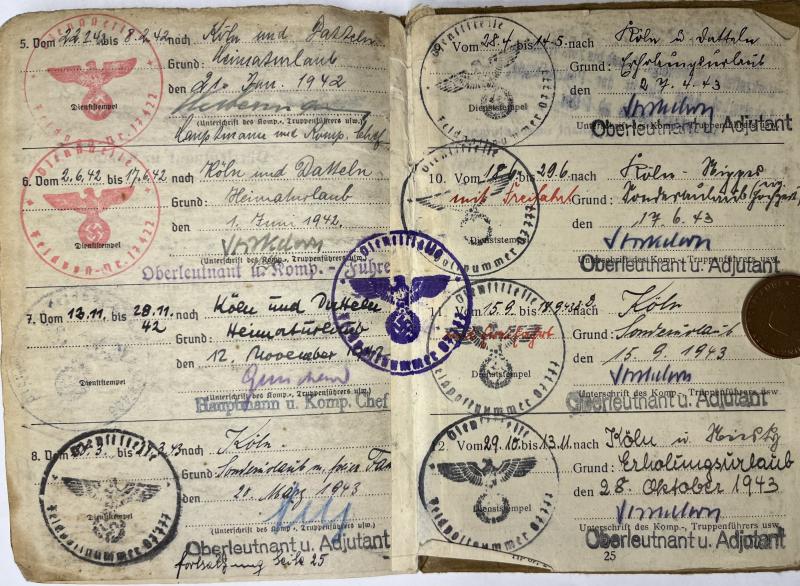 5. Vom 22.1.42 bis 8.2.42 nach Köln und Datteln
Grund: Heimaturlaub
den 21. Jan. 1942
Dienststempel
(Unterschrift des Komp.-, Truppenführers usw.)
Hauptmann und Komp. Chef
Dienststelle
Feldpost-Nr. 17422
6. Vom 2.6.42 bis 17.6.42 nach Köln und Datteln
Grund: Heimaturlaub
den 1. Juni 1942.
Dienststempel
(Unterschrift des Komp.-, Truppenführers usw.)
Oberleutnant u. Komp. - Führer
Dienststelle
Feldpost-Nr. 17422
7. Vom 13.11. bis 28.11. 42 nach Köln und Datteln
Grund: Heimaturlaub
den 12. November
Dienststempel
(Unterschrift des Komp.-, Truppenführers usw.)
Hauptmann u. Komp. Chef
8. Vom 3. bis 3.43 nach Köln.
Grund: Sonderurlaub m. freier
den 20. März 1943
Dienststempel
(Unterschrift des Komp.-, Truppenführers usw.)
Oberleutnant u. Adjutant
Fortsetzung Seite 25
Dienststelle
Feldpostnummer
Vom 28.4. bis 14.5. nach Köln u. Datteln
Grund: Erholungsurlaub
den 27.4.43
Dienststempel
Unterschrift des Komp.-, Truppenführers usw.
Oberleutnant u. Adjutant
Dienststelle
Feldpostnummer
10. Vom 18.6. bis 29.6. nach Köln - Nippes
mit Freifahrt
Grund: Sonderurlaub
den 17.6.43
Dienststempel
Unterschrift des Komp.-, Truppenführers usw.
Oberleutnant u. Adjutant
11. Vom 15.9. bis nach Köln
Grund: Sonderurlaub
den 15.9.1943
Dienststempel
Unterschrift des Komp.-, Truppenführers usw.
Oberleutnant u. Adjutant
12. Vom 29.10. bis 13.11. nach Köln u.
Grund: Erholungsurlaub
den 28. Oktober 1943
Dienststempel
Unterschrift des Komp.-, Truppenführers usw.
Oberleutnant u. Adjutant
25